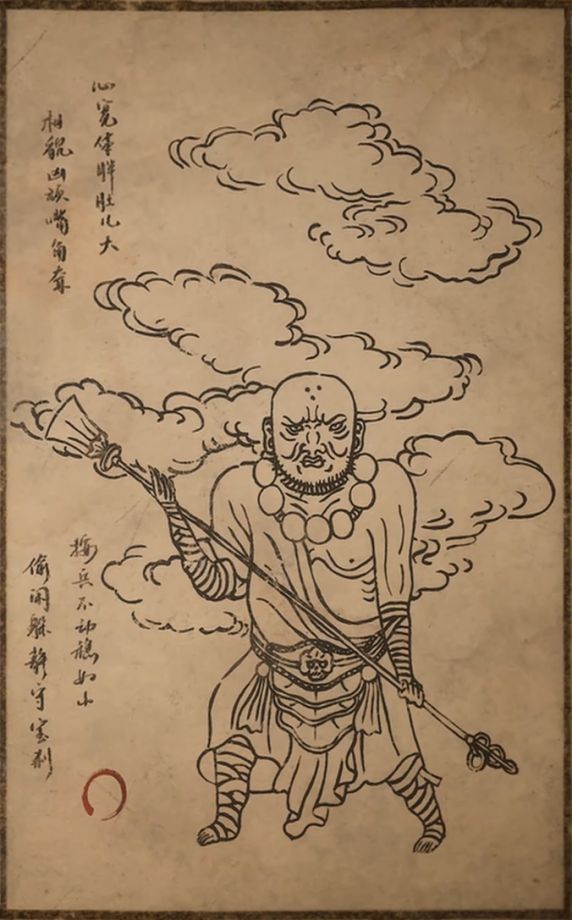 心宽体胖肚儿大
相貌凶顽嘴角耷
按兵不动稳如山
偷闲躲静守宝刹